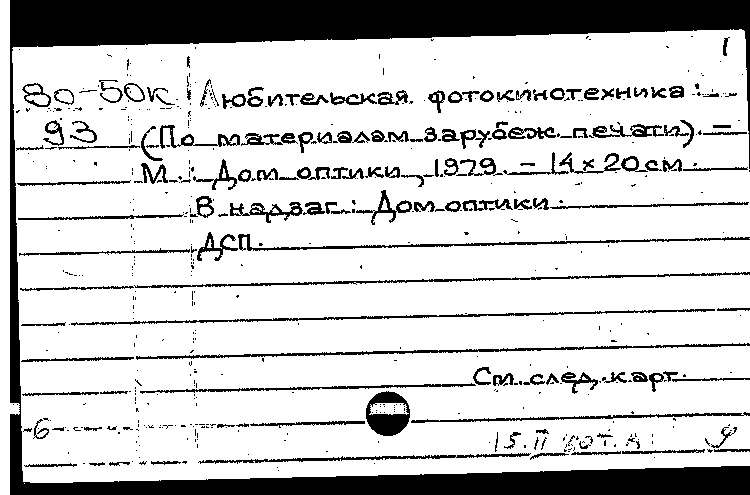 1
80-50к Любительская фотокинотехника:
93 (По материалам зарубеж. печати). –
М.: Дом оптики, 1979. – 14 x 20 см.
В надзаг.: Дом оптики.
ДСП.
См. след. карт.
6
15.II